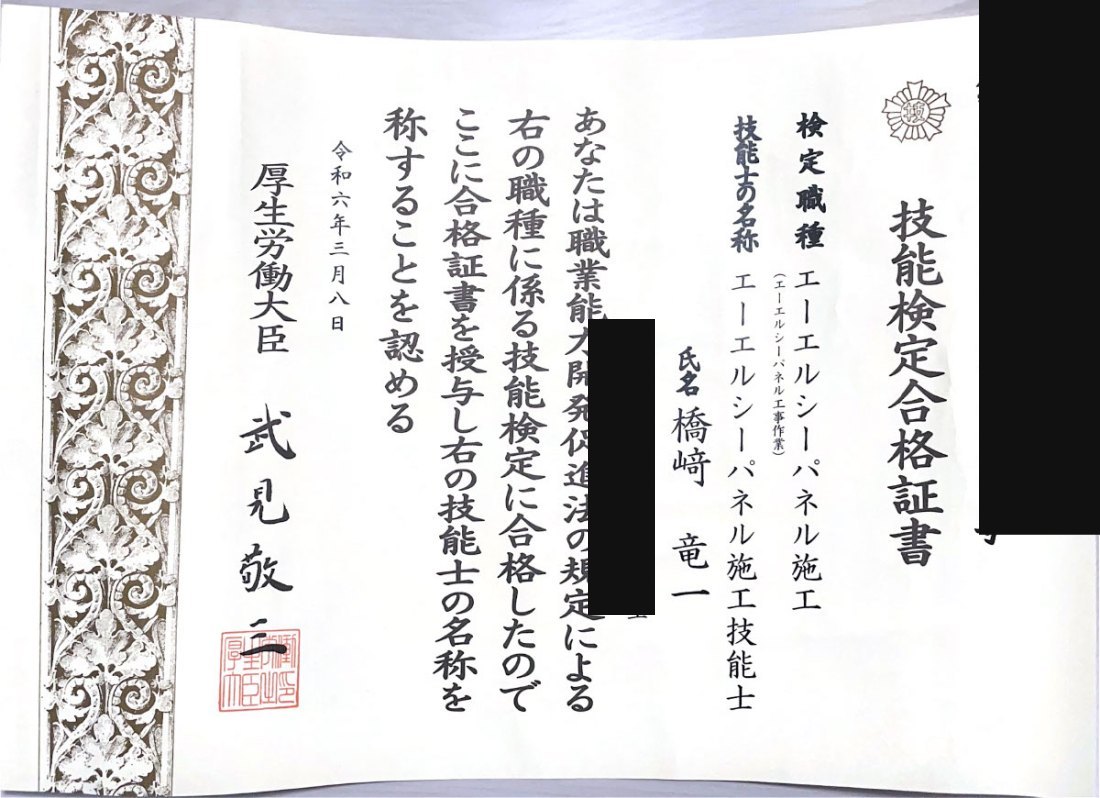 技能検定合格証書
検定職種 エーエルシーパネル施工
(エーエルシーパネル工事作業)
技能士の名称 エーエルシーパネル施工技能士
氏名 橋﨑 竜一
あなたは職業能力開発促進法の規定による
右の職種に係る技能検定に合格したので
ここに合格証書を授与し右の技能士の名称を
称することを認める
令和六年三月八日
厚生労働大臣 武見敬三